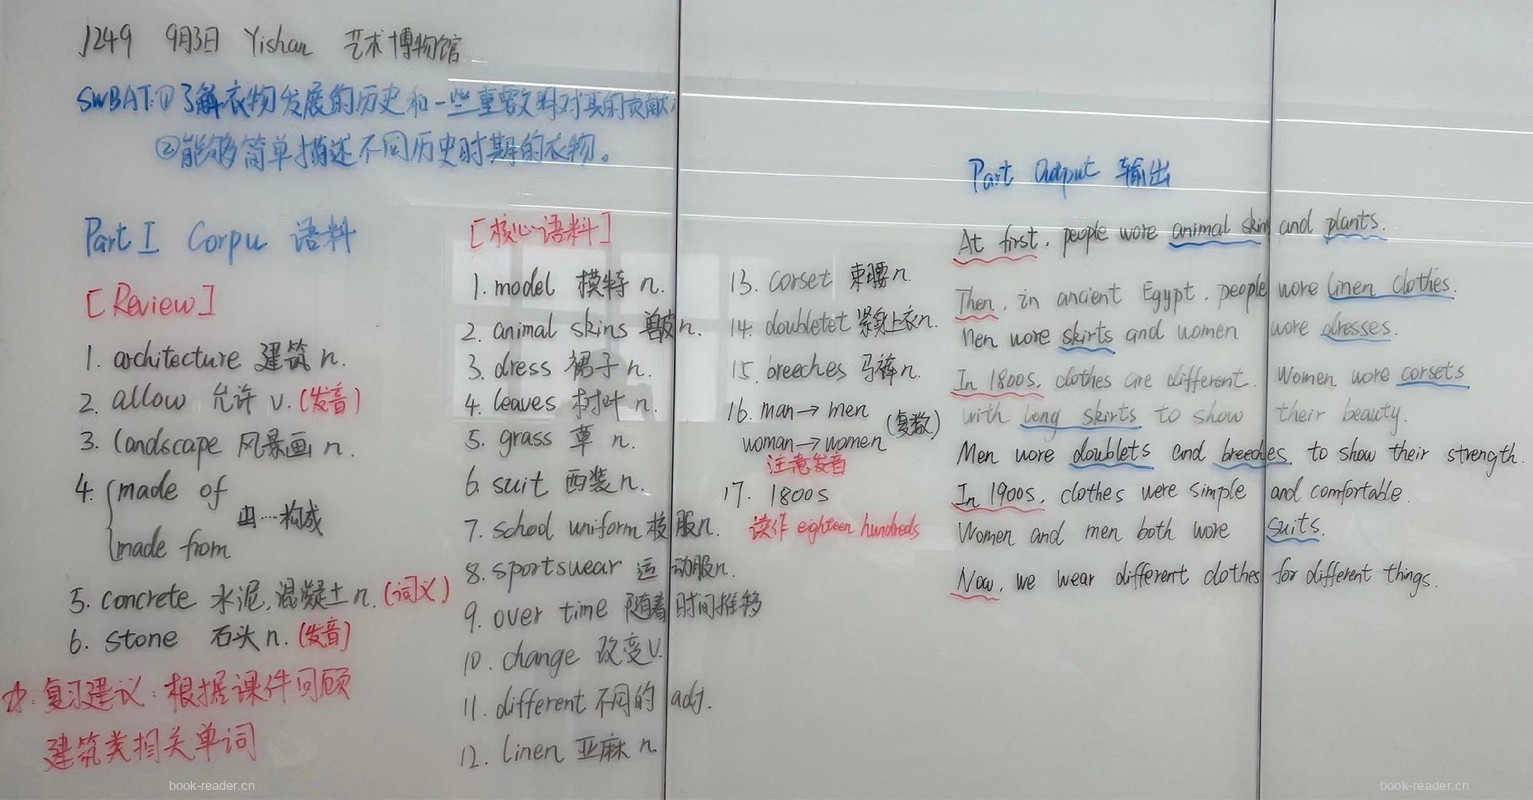 J249 9月3日 Yishan 艺术博物馆
SWBAT:①了解衣物发展的历史和一些重要材料对其的贡献;
②能够简单描述不同历史时期的衣物。
Part I Corpu 语料
[Review]
1. architecture 建筑 n.
2. allow 允许 v. (发音)
3. landscape 风景画 n.
4. made of
由…构成
made from
5. concrete 水泥,混凝土 n. (词义)
6. stone 石头 n. (发音)
☆:复习建议:根据课件回顾
建筑类相关单词
[核心语料]
1. model 模特 n.
2. animal skins 兽皮 n.
3. dress 裙子 n.
4. leaves 树叶 n.
5. grass 草 n.
6. suit 西装 n.
7. school uniform 校服 n.
8. sportswear 运动服 n.
9. over time 随着时间推移
10. change 改变 v.
11. different 不同的 adj.
12. linen 亚麻 n
13. corset 束腰 n
14. doubletet 紧身上衣 n.
15. breeches 马裤 n.
16. man→men
(复数)
woman→women
注意发音
17. 1800s
读作 eighteen hundreds
Part Output 输出
At first, people wore animal skin and plants.
Then, in ancient Egypt, people wore linen clothes.
Men wore skirts and women wore dresses.
In 1800s, clothes are different. Women wore corsets
with long skirts to show their beauty.
Men wore doublets and breeches to show their strength.
In 1900s, clothes were simple and comfortable.
Women and men both wore suits.
Now, we wear different clothes for different things.
book-reader.cn
book-reader.cn